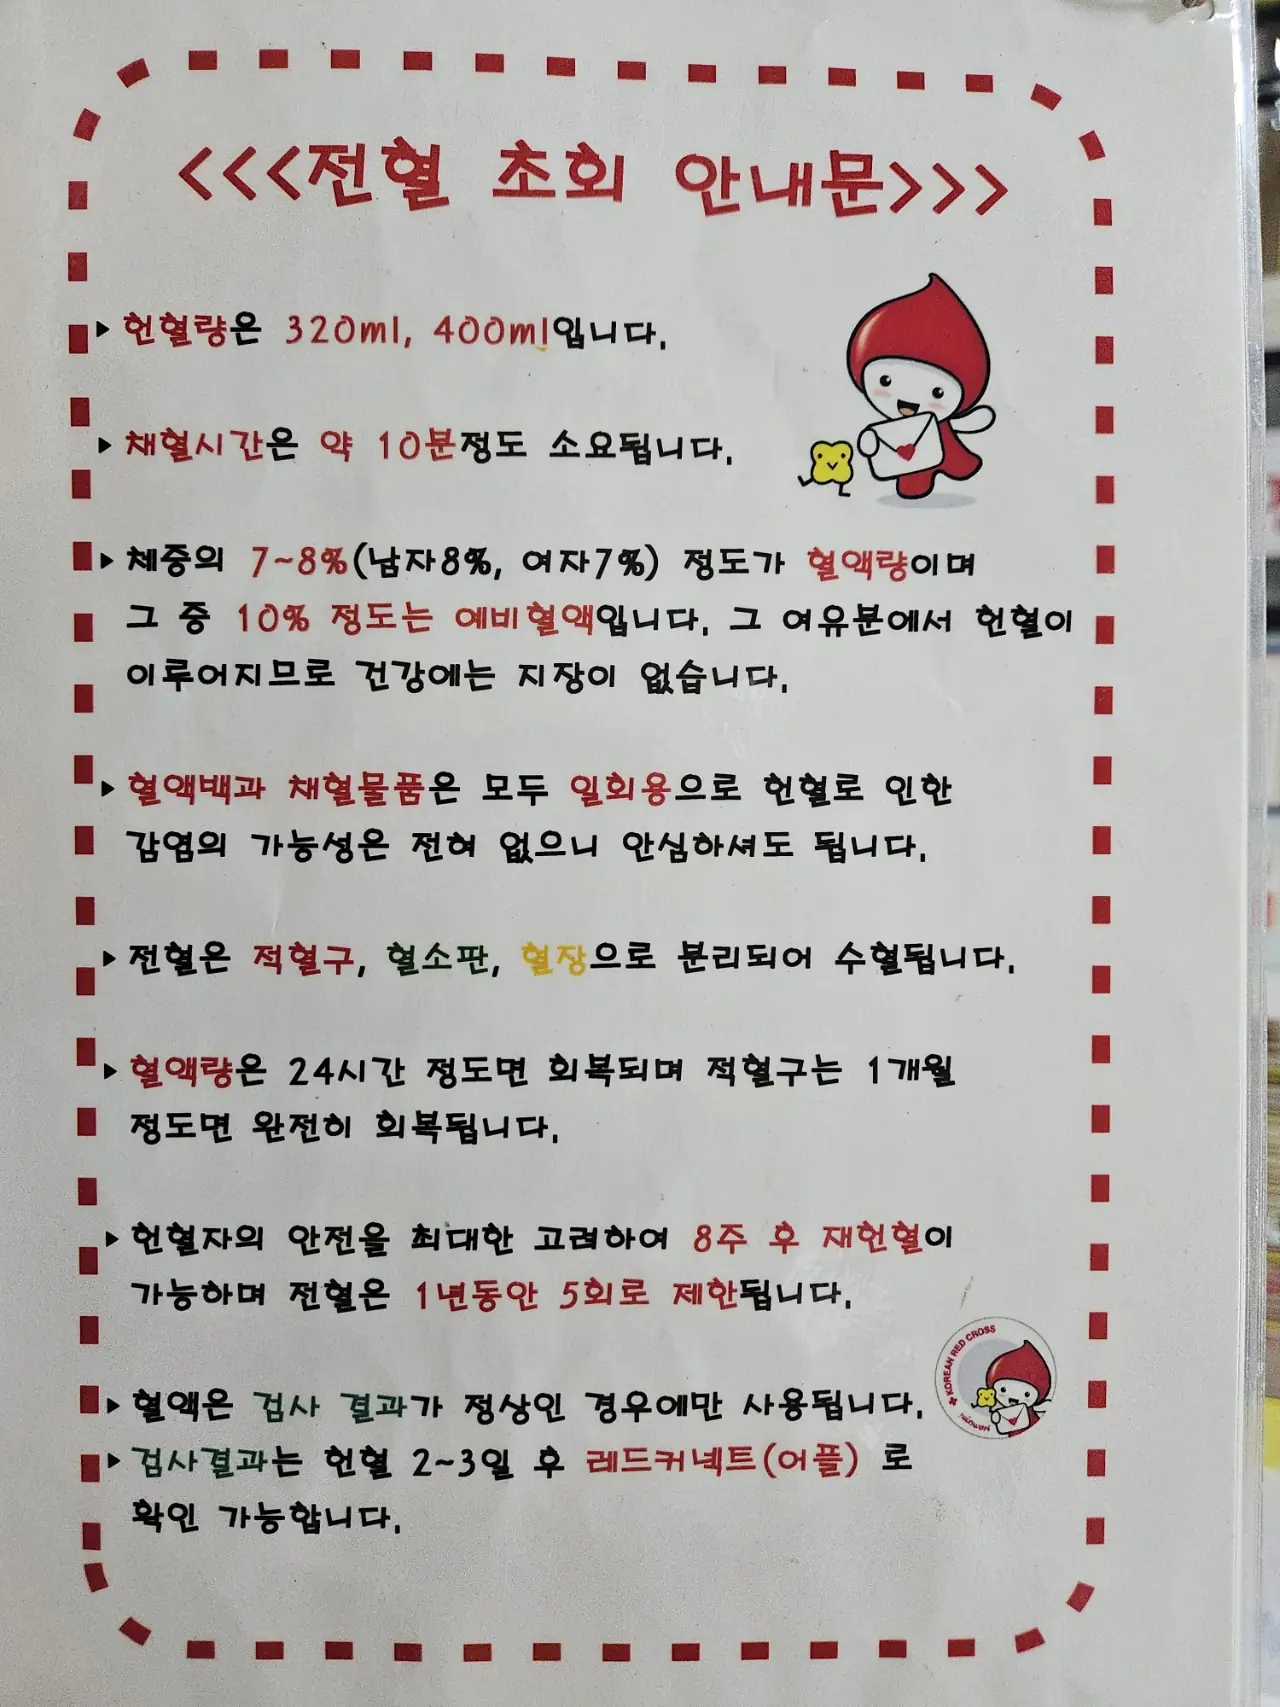 <<<전혈 초회 안내문>>>
▶ 헌혈량은 320ml, 400ml입니다.
▶ 채혈시간은 약 10분정도 소요됩니다.
▶ 체중의 7~8%(남자8%, 여자7%) 정도가 혈액량이며
그 중 10% 정도는 예비혈액입니다. 그 여유분에서 헌혈이
이루어지므로 건강에는 지장이 없습니다.
▶ 혈액백과 채혈물품은 모두 일회용으로 헌혈로 인한
감염의 가능성은 전혀 없으니 안심하셔도 됩니다.
▶ 전혈은 적혈구, 혈소판, 혈장으로 분리되어 수혈됩니다.
▶ 혈액량은 24시간 정도면 회복되며 적혈구는 1개월
정도면 완전히 회복됩니다.
▶ 헌혈자의 안전을 최대한 고려하여 8주 후 재헌혈이
가능하며 전혈은 1년동안 5회로 제한됩니다.
KOREAN RED CROSS
▶ 혈액은 검사 결과가 정상인 경우에만 사용됩니다.
▶ 검사결과는 헌혈 2~3일 후 레드커넥트(어플) 로
확인 가능합니다.